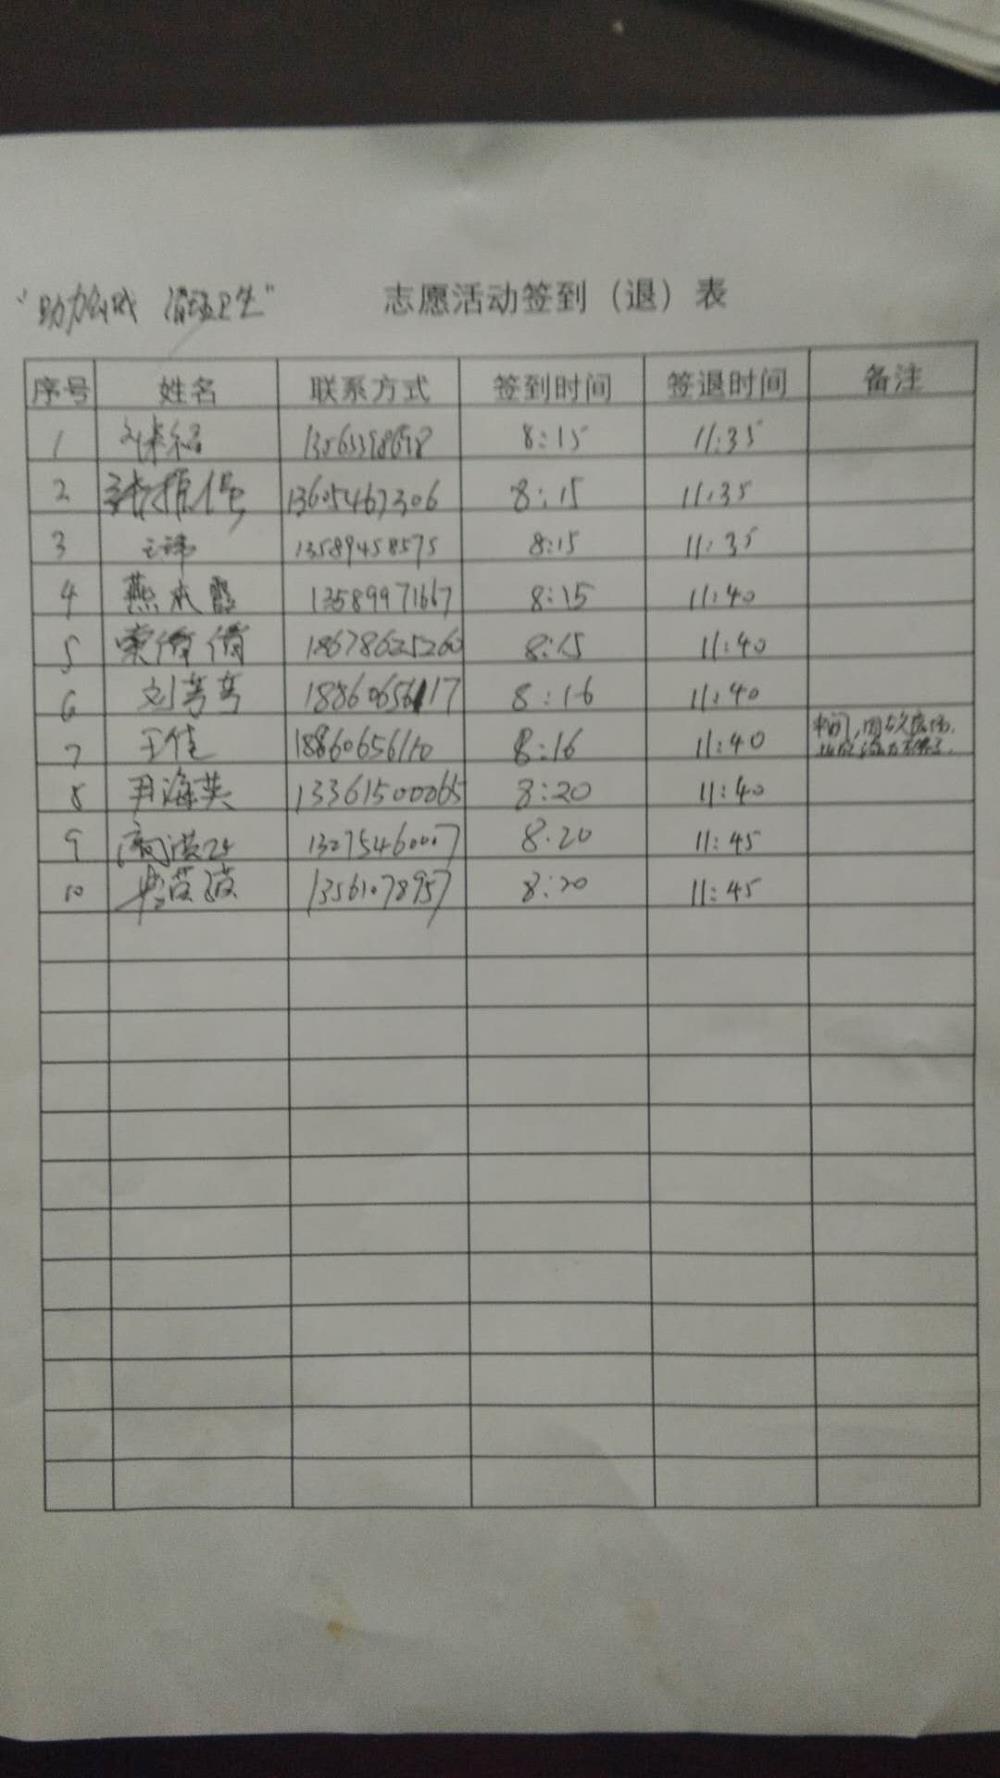 "助力创城 清理卫生" 志愿活动签到（退）表
序号 姓名 联系方式 签到时间 签退时间 备注
1 8:15 11:35
2 13605467306 8:15 11:35
3 王玮 13589458575 8:15 11:35
4 燕本霞 13589971667 8:15 11:40
5 索倩倩 18678625260 8:15 11:40
6 刘芳芳 18860656117 8:16 11:40
7 王佳 18860656110 8:16 11:40
8 尹海英 13361500065 8:20 11:40
9 13075460007 8:20 11:45
10 13561078957 8:20 11:45